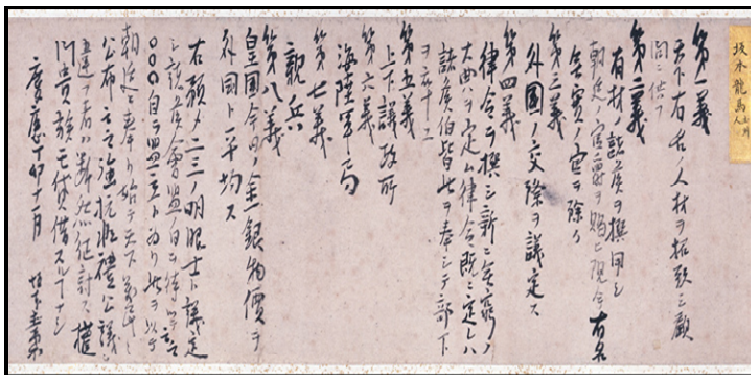 坂本龍馬
第一義
天下有名ノ人材ヲ招致シ顧
問ニ供フ
第二義
有材ノ諸侯ヲ撰用シ
朝廷ノ官爵ヲ賜ヒ現今有名
無実ノ官ヲ除ク
第三義
外國ノ交際ヲ議定ス
第四義
律令ヲ撰シ新ニ無窮ノ
大典ヲ定ム律令既ニ定レハ
諸侯伯皆此ヲ奉シテ部下
ヲ率ユ
第五義
上下議政所
第六義
海陸軍局
第七義
親兵
第八義
皇国今日ノ金銀物價ヲ
外国ト平均ス
右預メ二三ノ明眼士ト議定
シ諸侯會盟ノ日ヲ待ツテ云云
○○○自ラ盟主ト為リ此ヲ以テ
朝廷ニ奉リ始テ天下萬民ニ
公布云云強抗非禮公議ニ
違フ者ハ断然征討ス權
門貴族モ貸借スルコトナシ
慶應丁卯十一月 坂本直柔